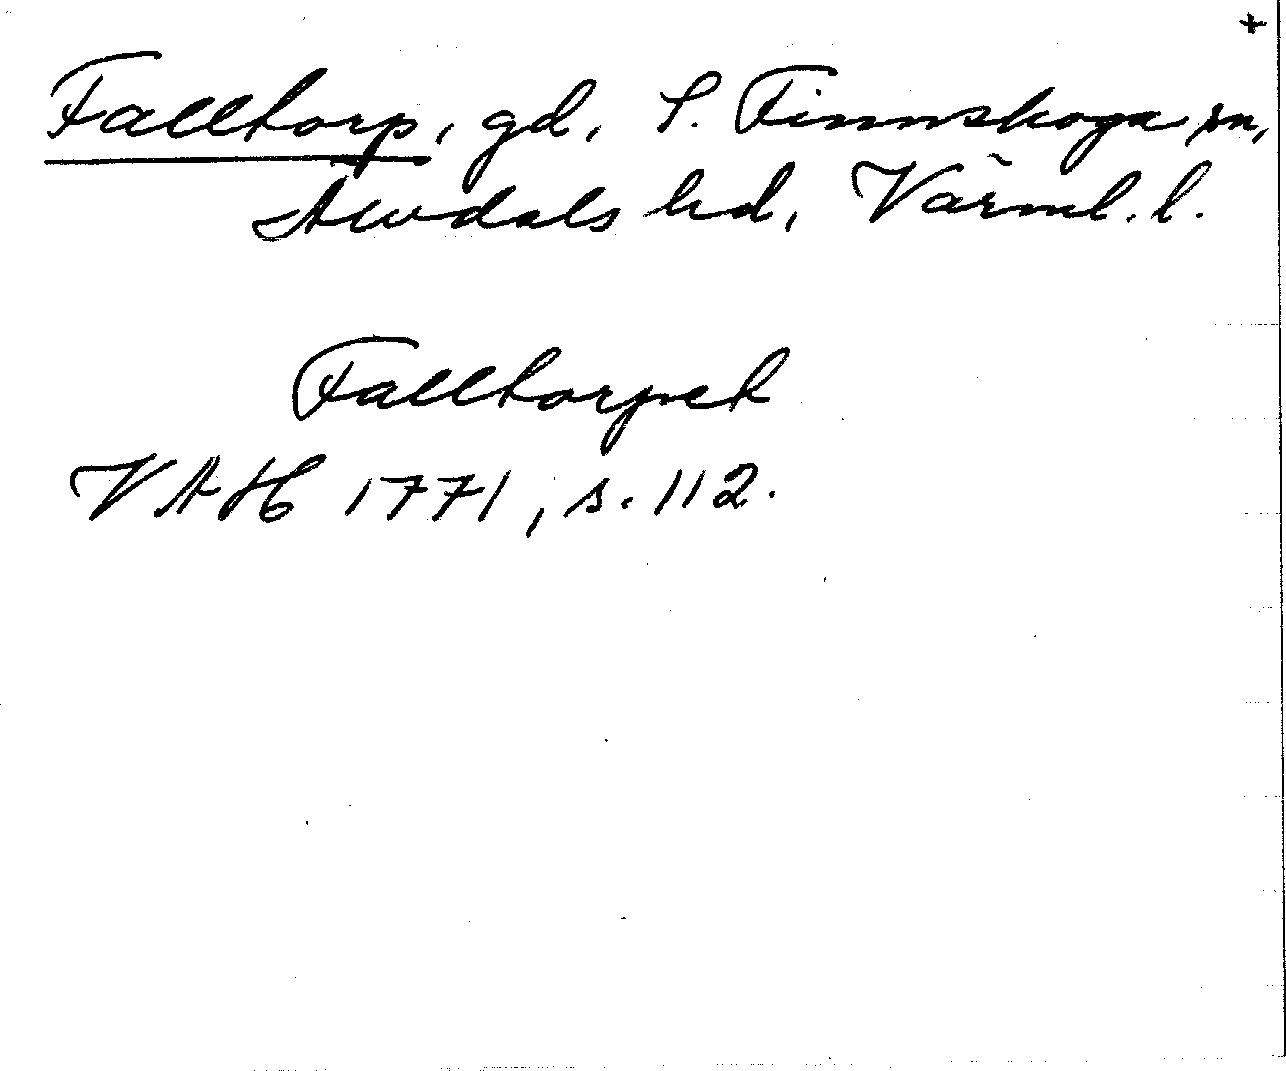 +
Falltorp, gd, S. Finnskoga sn,
Älvdals hd, Värml. l.
Falltorpet
VAH 1771, s. 112.